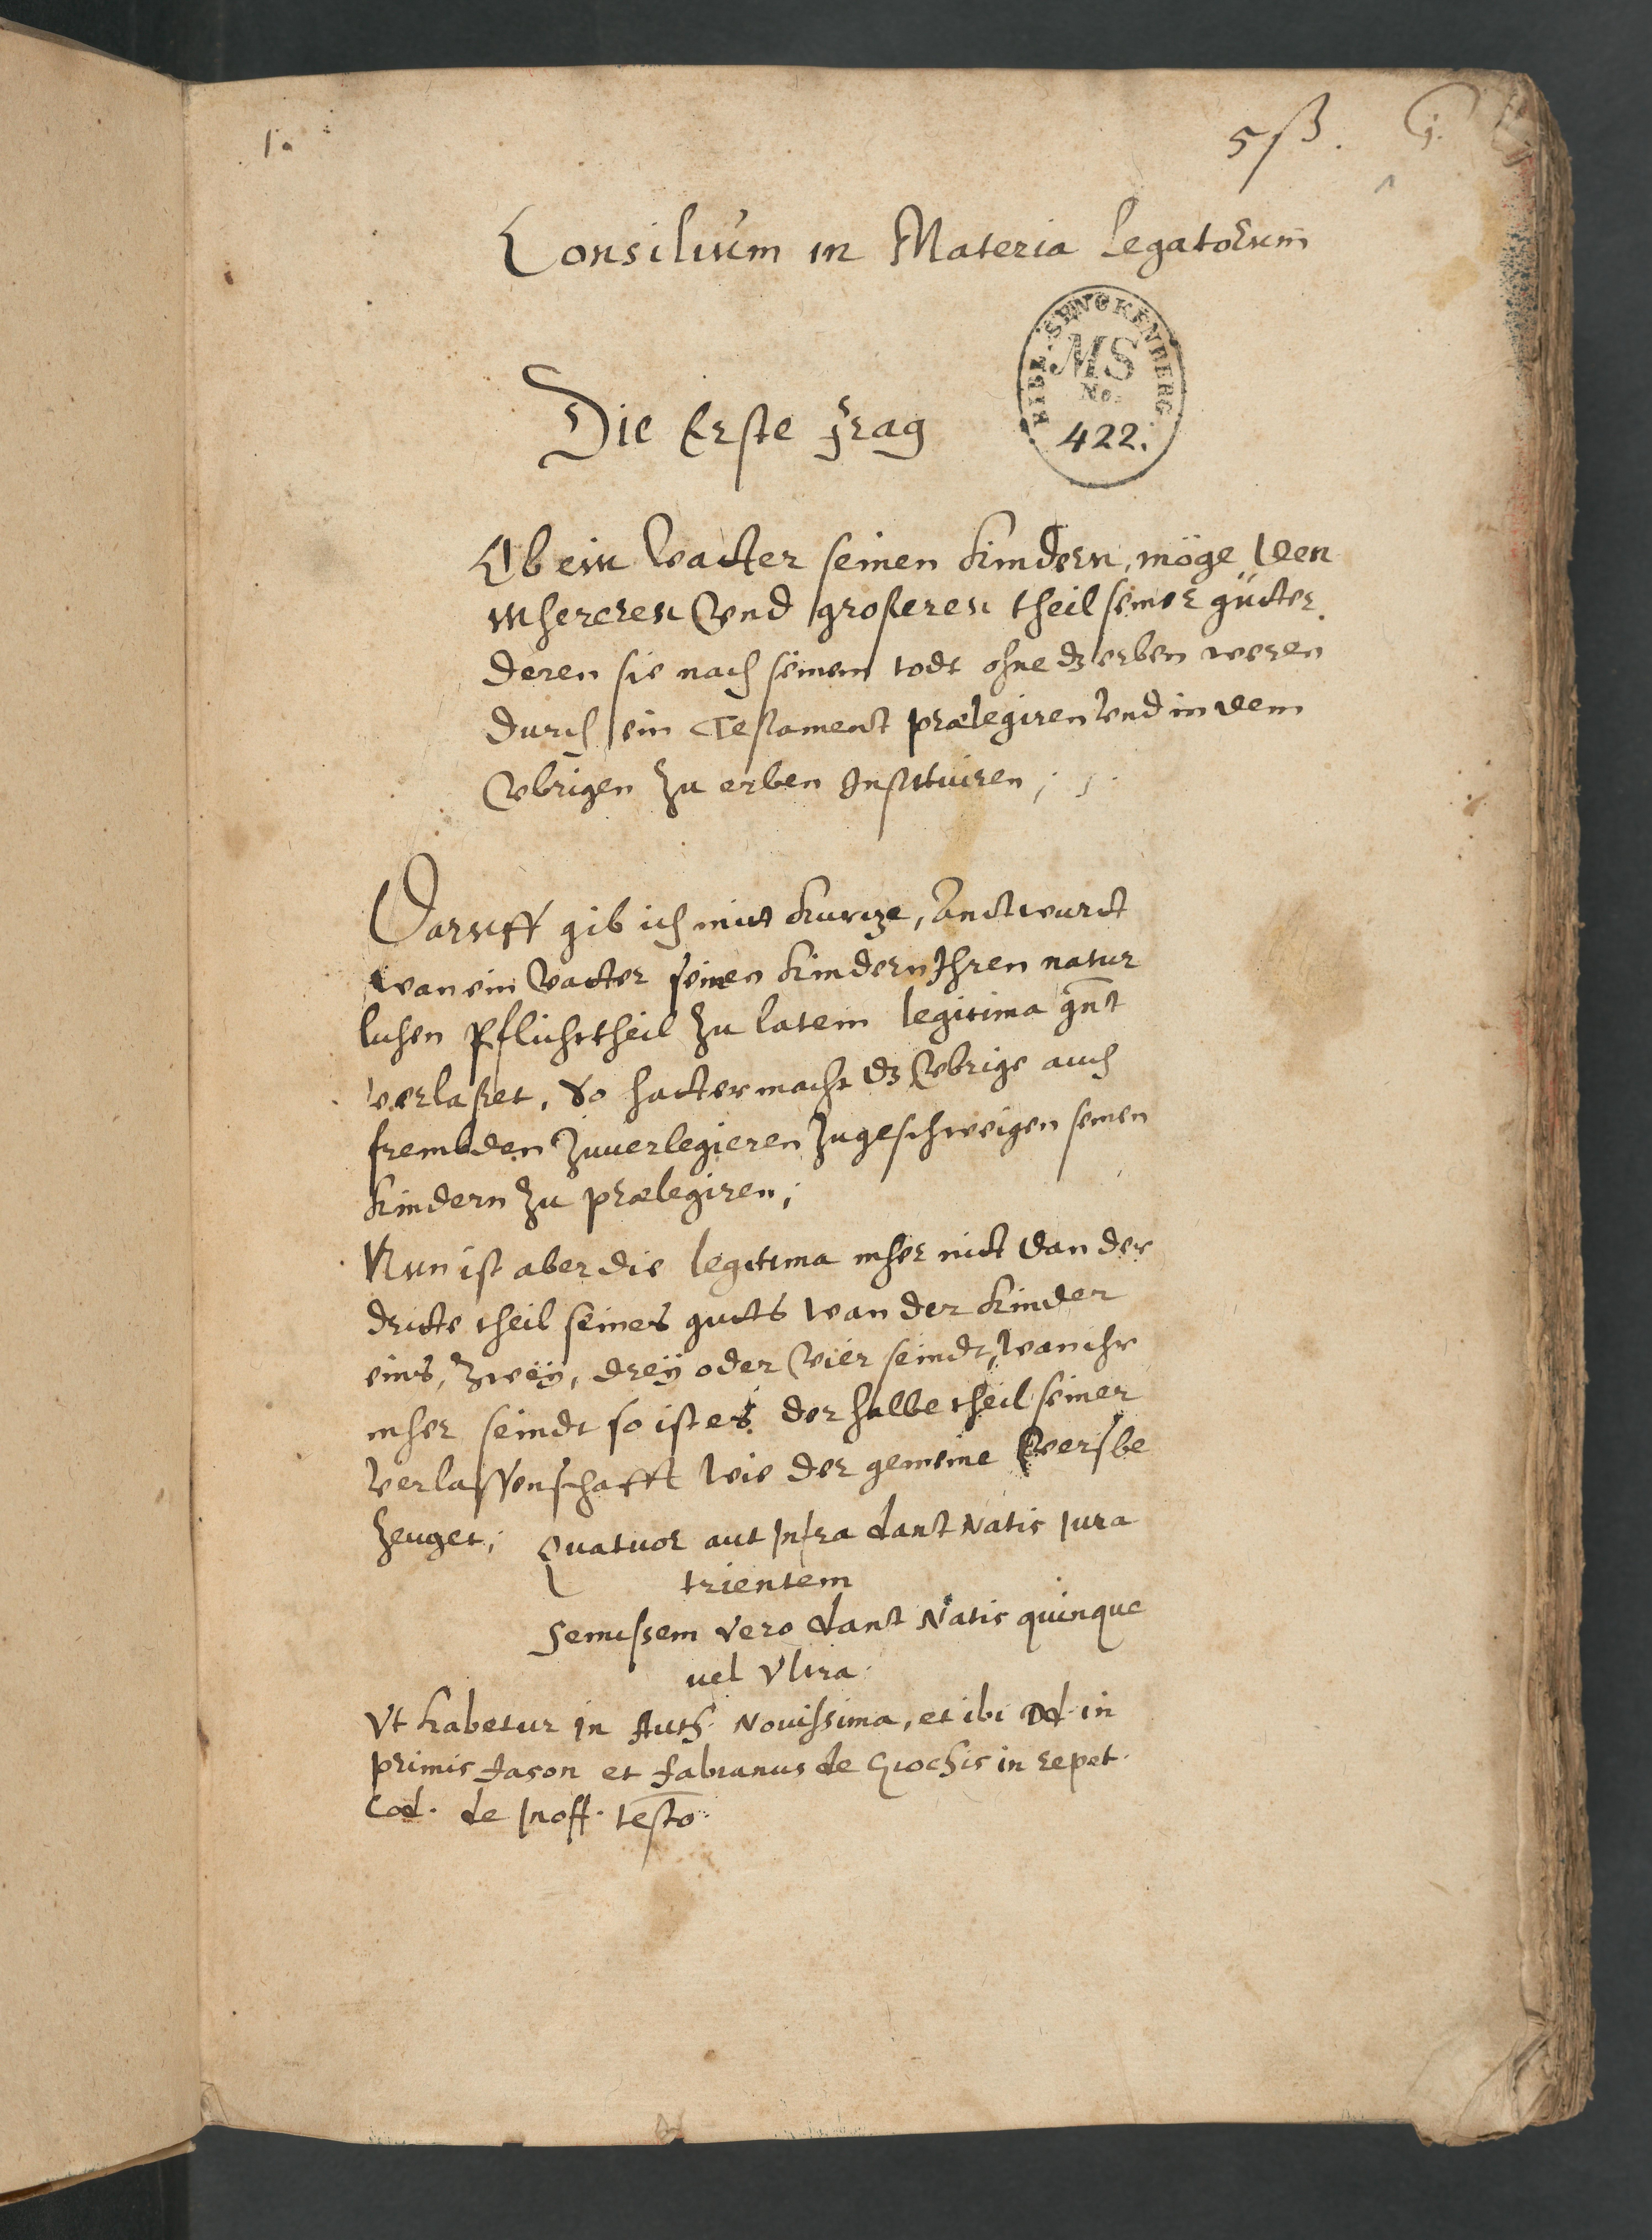 1.
5ß.
j.
1
Consilium in Materia Legatorum
BIBL. SENCKENBERG
MS
No.
422.
Die Erste frag
Ob ein Vatter seinen Kindern, möge den
mhereren Vnd großeren theil seiner gütter
deren sie nach seinem todt ohne dz erben weren
durch ein Testament prælegiren Vnd in dem
Vbrigen zu erben Instituiren;
Daruff gib ich mitt kurtze, Anttwurtt
wan ein Vatter seinen Kindern Ihren natur
lichen Pflichttheil zu latein legitima gnt
verlaßet, So hatt er macht dz Vbrige auch
frembden zuuerlegieren zugeschweigen seinen
Kindern zu prælegiren;
Nun ist aber die legitima mher nitt dan der
dritte theil seines gutts wan der Kinder
eins, zweÿ, dreÿ oder Vier seindt, wan ihr
mher seindt so ist es der halbe theil seiner
Verlassenschafft wie der gemeine Verß be
zeuget; Quatuor aut Infra dant Natis Jura
trientem
Semissem vero dant Natis quinque
uel Vltra.
Vt habetur in Auth. Nouissima, et ibi Dd. in
primis Jason et fabianus de Giochis in repet.
Cod. de Inoff. testo.